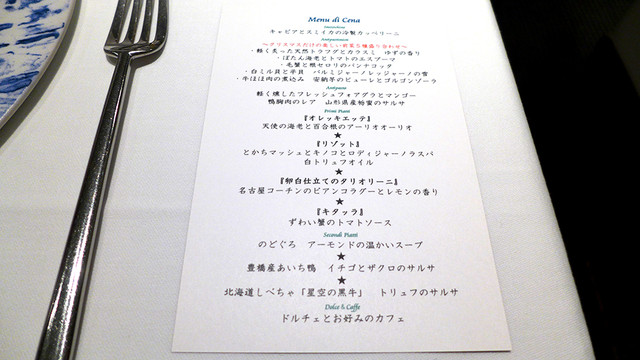 Menu di Cena
キャビアとスミイカの冷製カッペリーニ
～クリスマスだけの楽しい前菜５種盛り合わせ～
・軽く炙った天然トラフグとカラスミ　ゆずの香り
・ぼたん海老とトマトのエスプーマ
・毛蟹と根セロリのパンナコッタ
・白ミル貝と平貝　パルミジャーノレッジャーノの雪
・牛ほほ肉の煮込み　安納芋のピューレとゴルゴンゾーラ
Antipasto
軽く燻したフレッシュフォアグラとマンゴー
鴨胸肉のレア　山形県産枝蜜のサルサ
Primi Piatti
『オレッキエッテ』
天使の海老と百合根のアーリオオーリオ
★
『リゾット』
とかちマッシュとキノコとロディジャーノラスパ
白トリュフオイル
★
『卵白仕立てのタリオリーニ』
名古屋コーチンのビアンコラグーとレモンの香り
★
『キタッラ』
ずわい蟹のトマトソース
Secondi Piatti
のどぐろ　アーモンドの温かいスープ
★
豊橋産あいち鴨　イチゴとザクロのサルサ
★
北海道しべちゃ「星空の黒牛」　トリュフのサルサ
Dolce & Caffe
ドルチェとお好みのカフェ